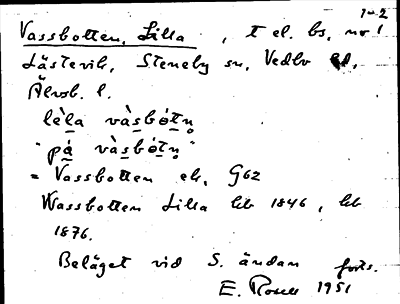 1-2
Vassbotten, Lilla, t el. bs, nr 1
Låstevik, Steneby sn, Vedbo hd,
Älvsb. l.
lèla vàsbótn̥
"pá vàsbótn̥"
= Vassbotten ek, G62
Wassbotten Lilla hb 1846, hb
1876.
Beläget vid S. ändan forts.
E. 1951